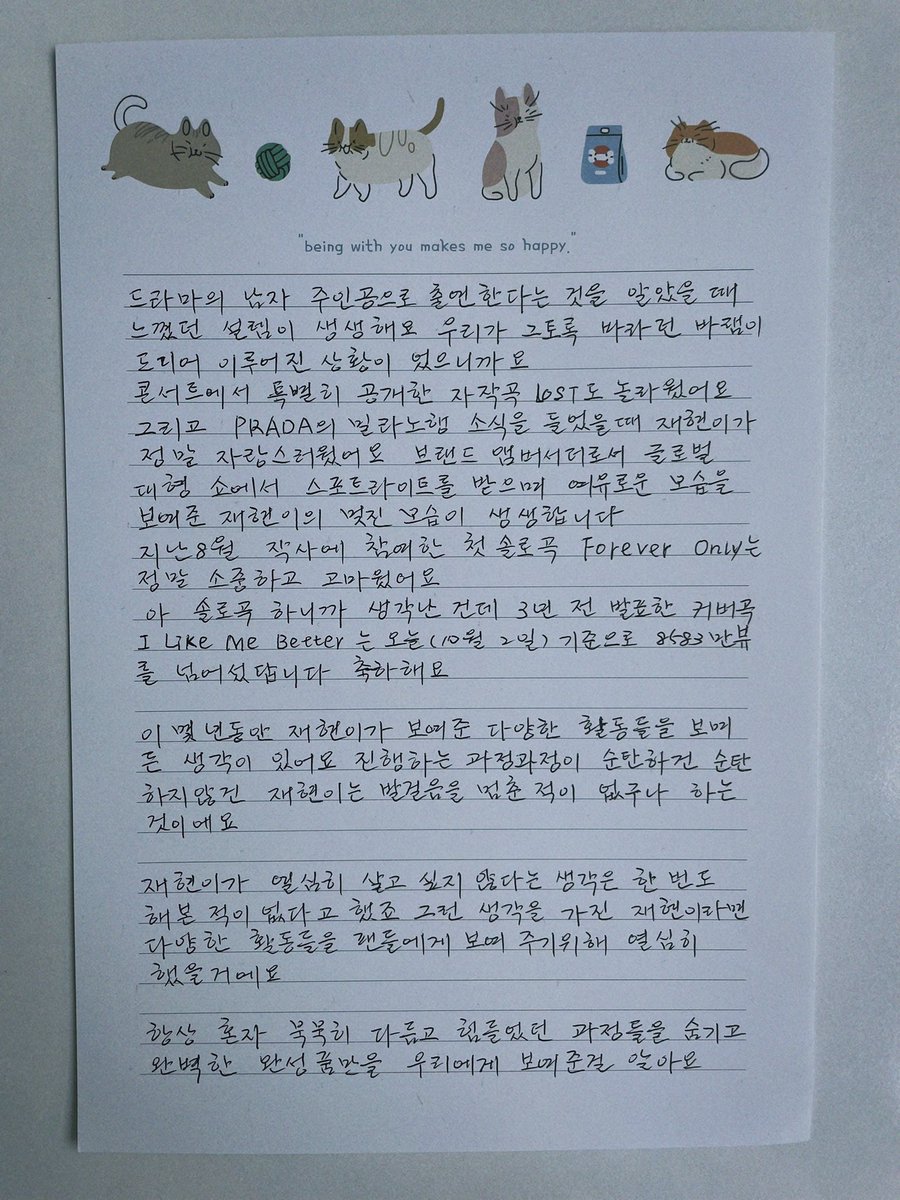 "being with you makes me so happy."
드라마의 남자 주인공으로 출연한다는 것을 알았을 때
느꼈던 설렘이 생생해요 우리가 그토록 바라던 바램이
드디어 이루어진 상황이 었으니까요
콘서트에서 특별히 공개한 자작곡 LOST도 놀라웠어요
그리고 PRADA의 밀라노행 소식을 들었을때 재현이가
정말 자랑스러웠어요 브랜드 앰버서더로서 글로벌
대형 쇼에서 스포트라이트를 받으며 여유로운 모습을
보여준 재현이의 멋진 모습이 생생합니다
지난8월 작사에 참여한 첫 솔로곡 Forever Only는
정말 소중하고 고마웠어요
아 솔로곡 하니까 생각난 건데 3년 전 발표한 커버곡
I Like Me Better 는 오늘(10월 2일) 기준으로 8583만뷰
를 넘어섰답니다 축하해요
이 몇 년동안 재현이가 보여준 다양한 활동들을 보며
든 생각이 있어요 진행하는 과정과정이 순탄하건 순탄
하지않건 재현이는 발걸음을 멈춘 적이 없구나 하는
것이에요
재현이가 열심히 살고 싶지 않다는 생각은 한 번도
해본 적이 없다고 했죠 그런 생각을 가진 재현이라면
다양한 활동들을 팬들에게 보여 주기위해 열심히
했을거에요
항상 혼자 묵묵히 다듬고 힘들었던 과정들을 숨기고
완벽한 완성품만을 우리에게 보여준걸 알아요